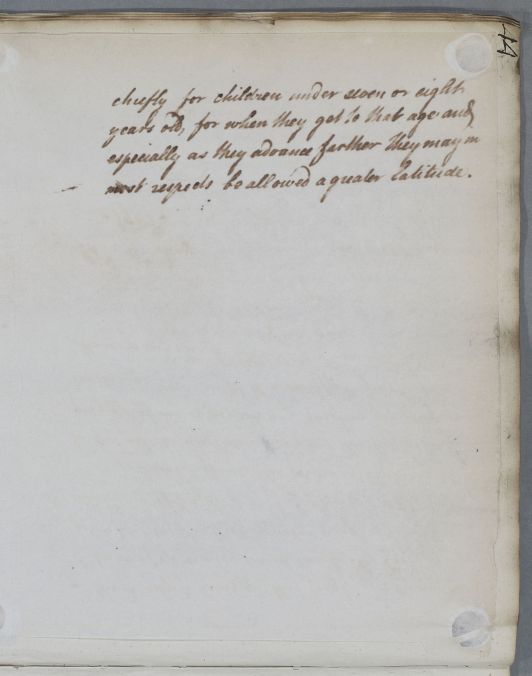 44
chiefly for children under seven or eight
years old, for when they get to that age and
especially as they advance farther they may in
most respects be allowed a greater latitude.